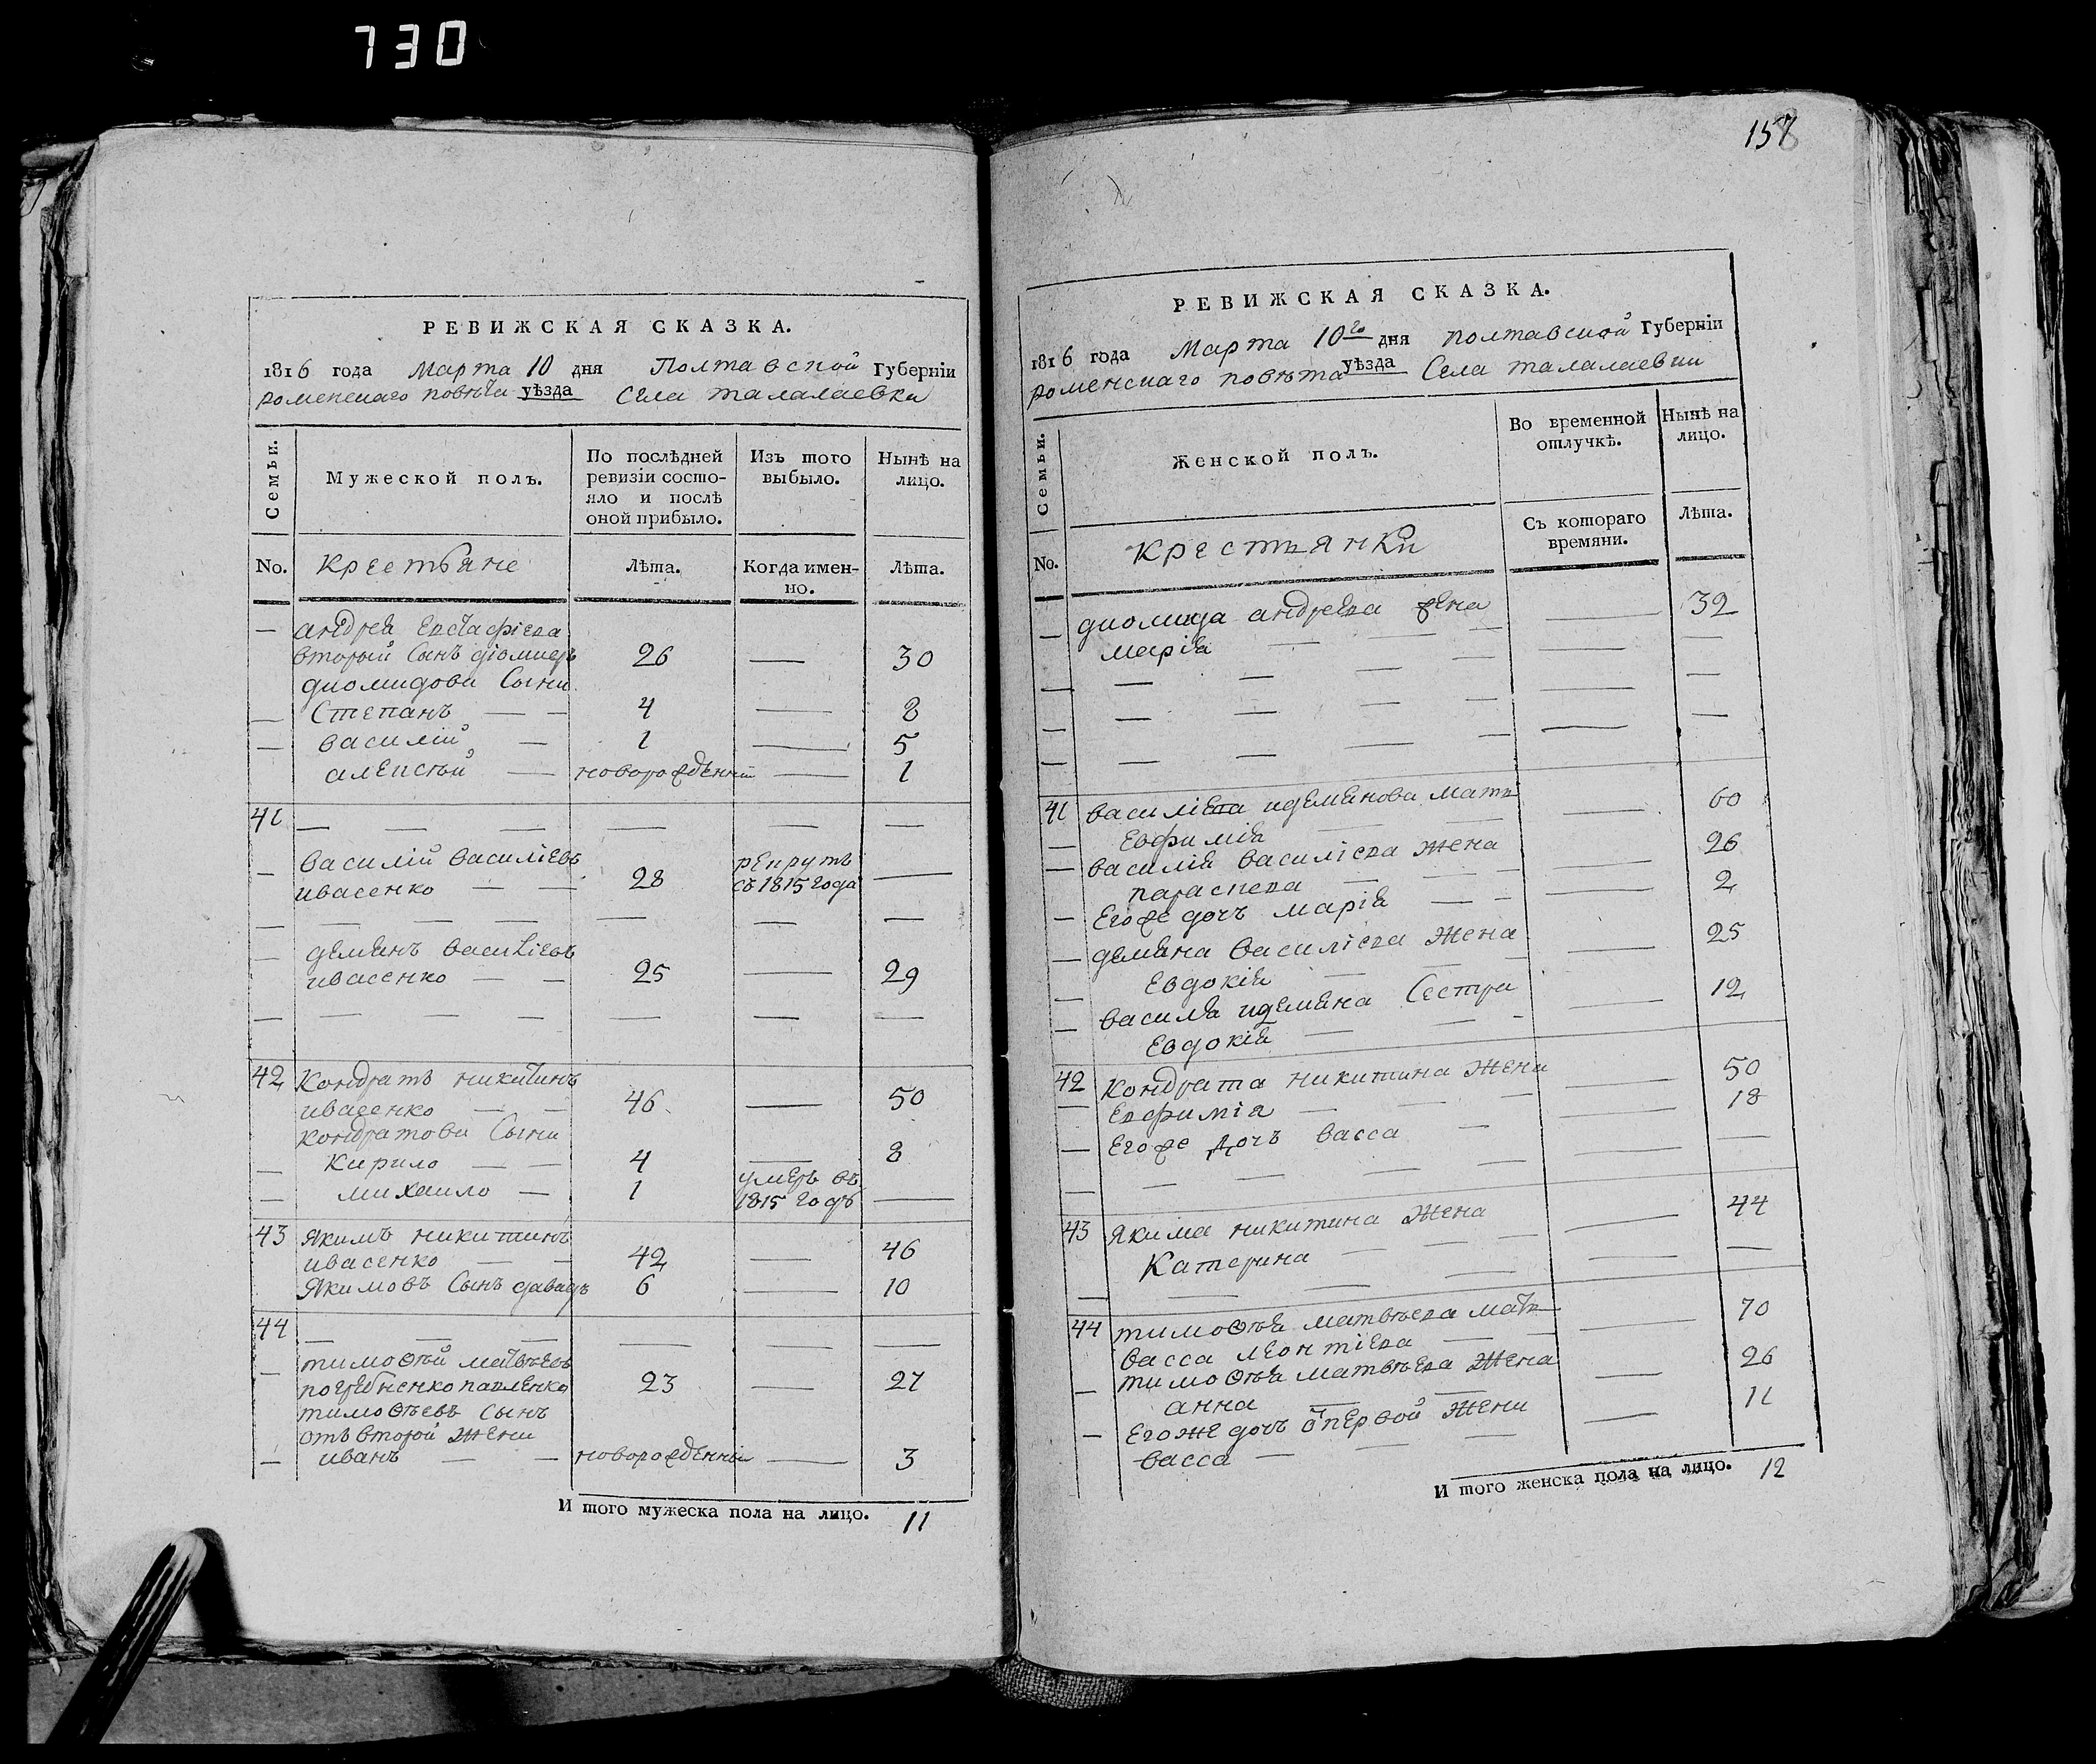 730
РЕВИЖСКАЯ СКАЗКА.
1816 года Марта 10 дня Полтавской Губерніи
роменскаго повѣта уѣзда Села талалаевки
Семьи.
Мужеской полъ.
По послѣдней ревизіи состо-
яло и послѣ
оной прибыло.
Изъ того
выбыло.
Нынѣ на
лицо.
No. крестьяне Лѣта. Когда имен-
но. Лѣта.
— андрея Евстафіева
второй Сынъ діомидъ 26 — 30
диомидови Сыни
— Степанъ — — 4 — 8
— василій — 1 — 5
алексѣй — новорожденній — 1
41 — — — — — —
— василій василіевъ рекрутъ
ивасенко — — 28 съ 1815 года —
— — — — — — — —
— демянъ василіевъ
ивасенко — — 25 — 29
— — — — — — —
42 Кондратъ никитинъ
ивасенко — — 46 — 50
кондратови Сыни
— Кирило — — 4 — 8
— михаило — 1 умеръ въ
1815 годѣ —
43 Якимъ никитинъ
ивасенко — — 42 — 46
Якимовъ Сынъ давидъ 6 — 10
44 — — — — — —
— тимоѳѣй матвѣевъ
погребненко павленко 23 — 27
тимоѳѣевъ сынъ
отъ второй жени
— иванъ — — новорожденній — 3
И того мужеска пола на лицо. 11
158
РЕВИЖСКАЯ СКАЗКА.
1816 года Марта 10го дня полтавской Губерніи
роменскаго повѣта уѣзда Села талалаевки
Семьи.
Женской полъ.
Во временной
отлучкѣ.
Нынѣ на
лицо.
No. крестьянки Съ котораго
времяни. Лѣта.
— диомида андреева жена — 32
марія — — —
— — — — — — —
— — — — — — —
— — — — — — —
41 василіева идемянова мать — 60
— Евфимія — —
— василія василіева жена — 26
параскева — — —
— Егоже дочъ марія — — — 2
— демяна василіева жена — 25
— Евдокія — — —
— василя идемяна Сестра — 12
Евдокія — — —
42 кондрата никитина жена — 50
— Евфимія — — —
— Егоже дочъ васса — — 18
— — — — — —
43 якима никитина жена — 44
Катерина — — —
— — — — — —
44 тимоѳѣя матвѣева мать — 70
васса леонтіева — —
— тимоѳѣя матвѣева жена — 26
анна — —
— Егоже дочъ ѿ первой жени — 11
васса — — —
И того женска пола на лицо. 12